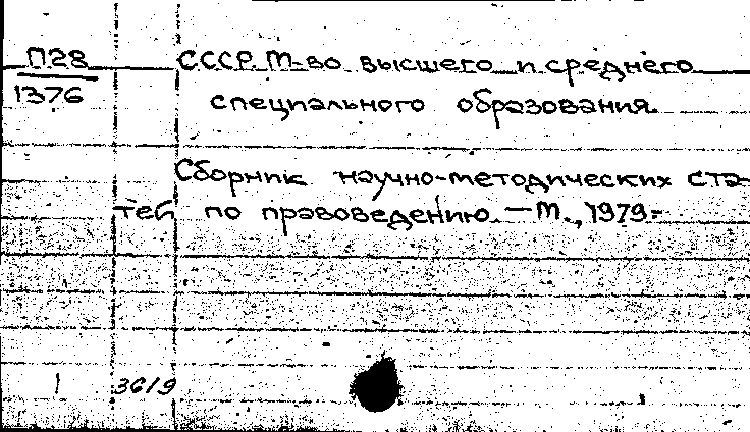 П28 СССР. М-во высшего и среднего
1376 специального образования.
Сборник научно-методических ста-
тей по правоведению. — М., 1979-
1 3619